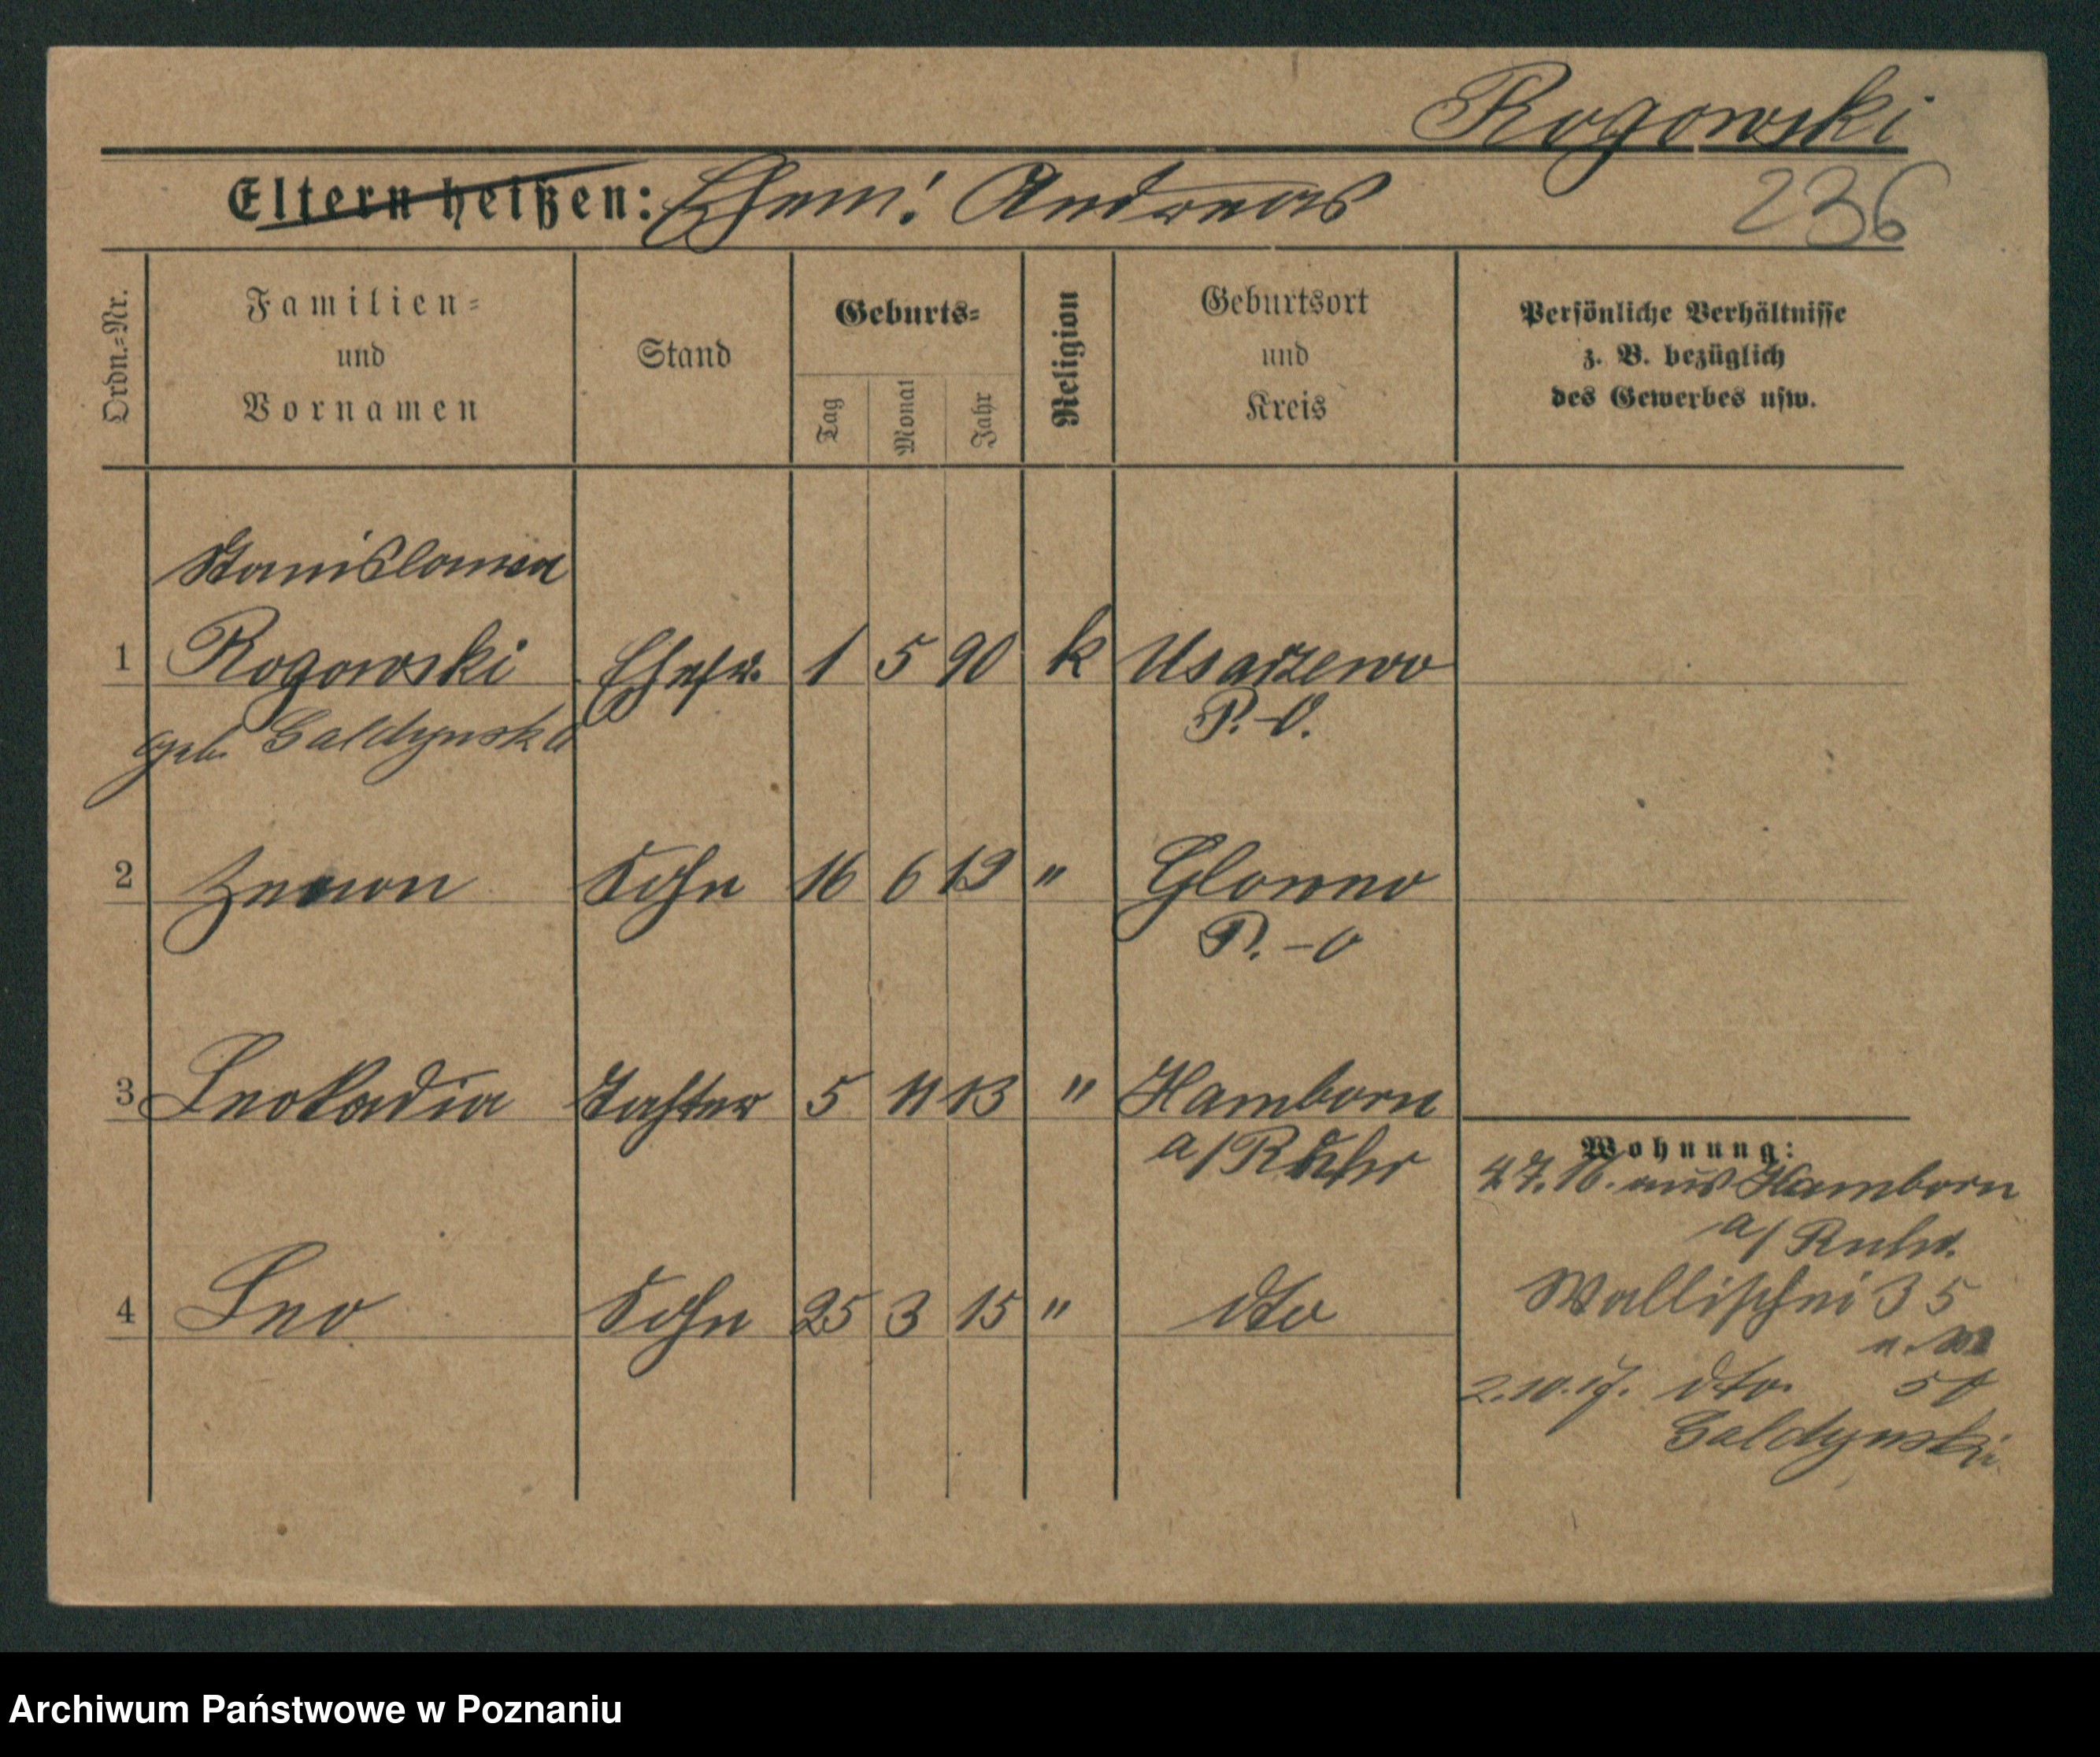 Rogowski
Eltern heißen: Ehem: Andreas
236
Ordn.=Nr.
Familien=
und
Vornamen
Stand
Geburts=
Tag
Monat
Jahr
Religion
Geburtsort
und
Kreis
Persönliche Verhältnisse
z. B. bezüglich
des Gewerbes usw.
Stanislawa
1 Rogowski Ehefr. 1 5 90 k Usarzewo
P.-O.
geb. Galdynska
2 Zenon Sohn 16 6 12 " Glowno
P.-O
3 Leokadia Tochter 5 11 13 " Hamborn
a/Ruhr
4 Leo Sohn 25 3 15 " dto
Wohnung:
4.7.16. aus Hamborn
a/ Ruhr.
Wallischei 35
2.10.17. dto. 50
Galdynski
Archiwum Państwowe w Poznaniu